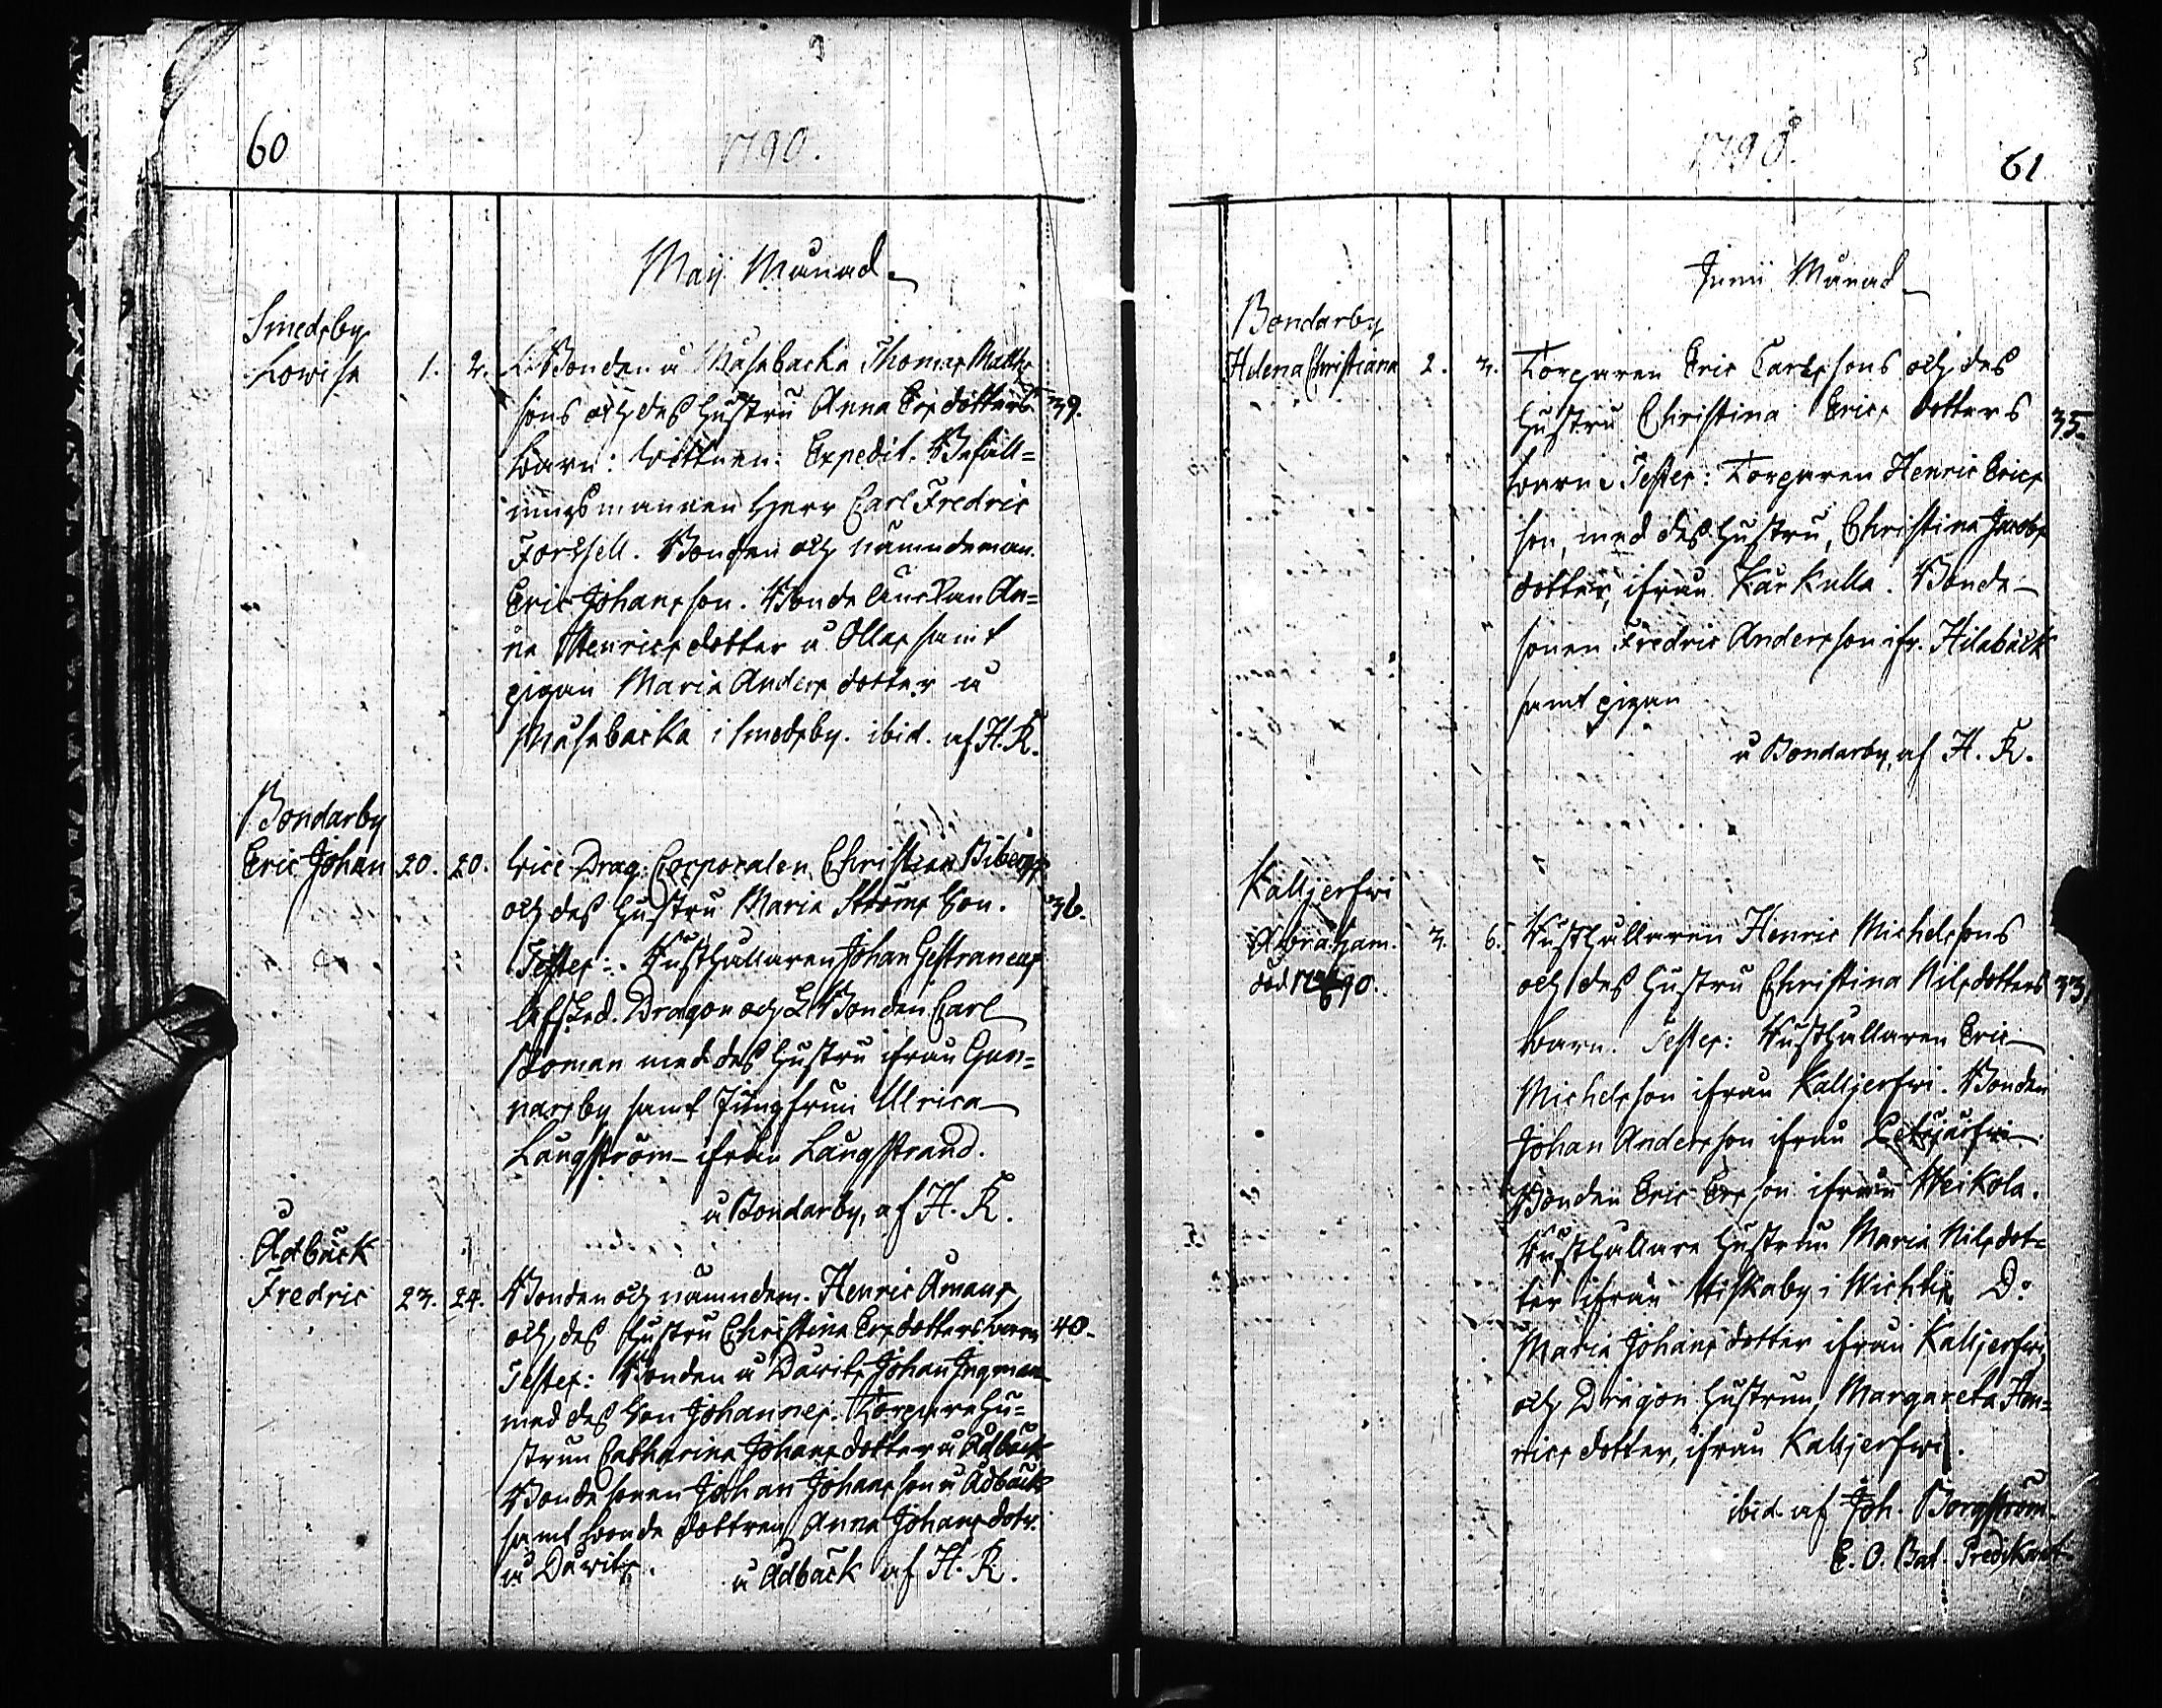 60
1790.
Maij Månad
Smedsby
Lowisa 1. 2. Bonden å Måsabacka Thomas Matts
sons och des hustru Anna Ersdotters 39.
barn: Wittnen: Expedit. Befall=
ningsmannen Herr Carl Fredric
Forssell. Bonden och nämndeman
Eric Johansson. Bonde Enckan An=
na Henricsdotter å Ollas samt
pigan Maria Andersdotter å
Måsabacka i Smedsby. ibid. af H. K.
Bondarby
Eric Johan 20. 20. Vice Drag: Corporalen Christian Bibergs
och des hustru Maria Ströms son. 36.
Testes: Rusthållaren Johan Gestraneus
Afsked. Dragon och Bonden Carl
Boman med des hustru ifrån Gun=
narsby samt Jungfrun Ulrica
Långström ifrån Långstrand.
å Bondarby, af H. K.
Ådbäck
Fredric 23. 24. Bonden och nämndem. Henric Åmans
och des hustru Christina Ersdotters barn 40.
Testes: Bonden å Davits Johan Ingman
med des son Johannes. Torpare hu=
strun Catharina Johansdotter å Ådbäck
Bondesonen Johan Johansson å Ådbäck
samt bonde dottren Anna Johansdotr.
å Davits. å Ådbäck af H. K.
1790.
61
Junii Månad
Bondarby
Helena Christiana 2. 3. Torparen Eric Carlssons och des
hustru Christina Erics dotters 35.
barn. Testes: Torparen Henric Erics
son, med des hustru, Christina Jacobs
dotter, ifrån Karkulla. Bonde
sonen Fredric Andersson ifr. Hilabäck
samt pigan
å Bondarby, af H. K.
Kalljerfwi
Abraham. 3. 6. Rusthållaren Henric Michelssons
död 90. och des hustru Christina Nilsdotters 33.
barn. Testes: Rusthållaren Eric
Michelsson ifrån Kalljerfwi. Bonden
Johan Andersson ifrån
Bonden Eric Ersson ifrån Weikola.
Rusthållare hustrun Maria Nilsdot=
ter ifrån Hiskaby i Wichtis D:o
Maria Johansdotter ifrån Kalljerfwi,
och Dragon hustrun, Margareta Hen=
ricsdotter, ifrån Kalljerfwi.
ibid. af Joh. Borgström.
E. O. Bat. Predikant